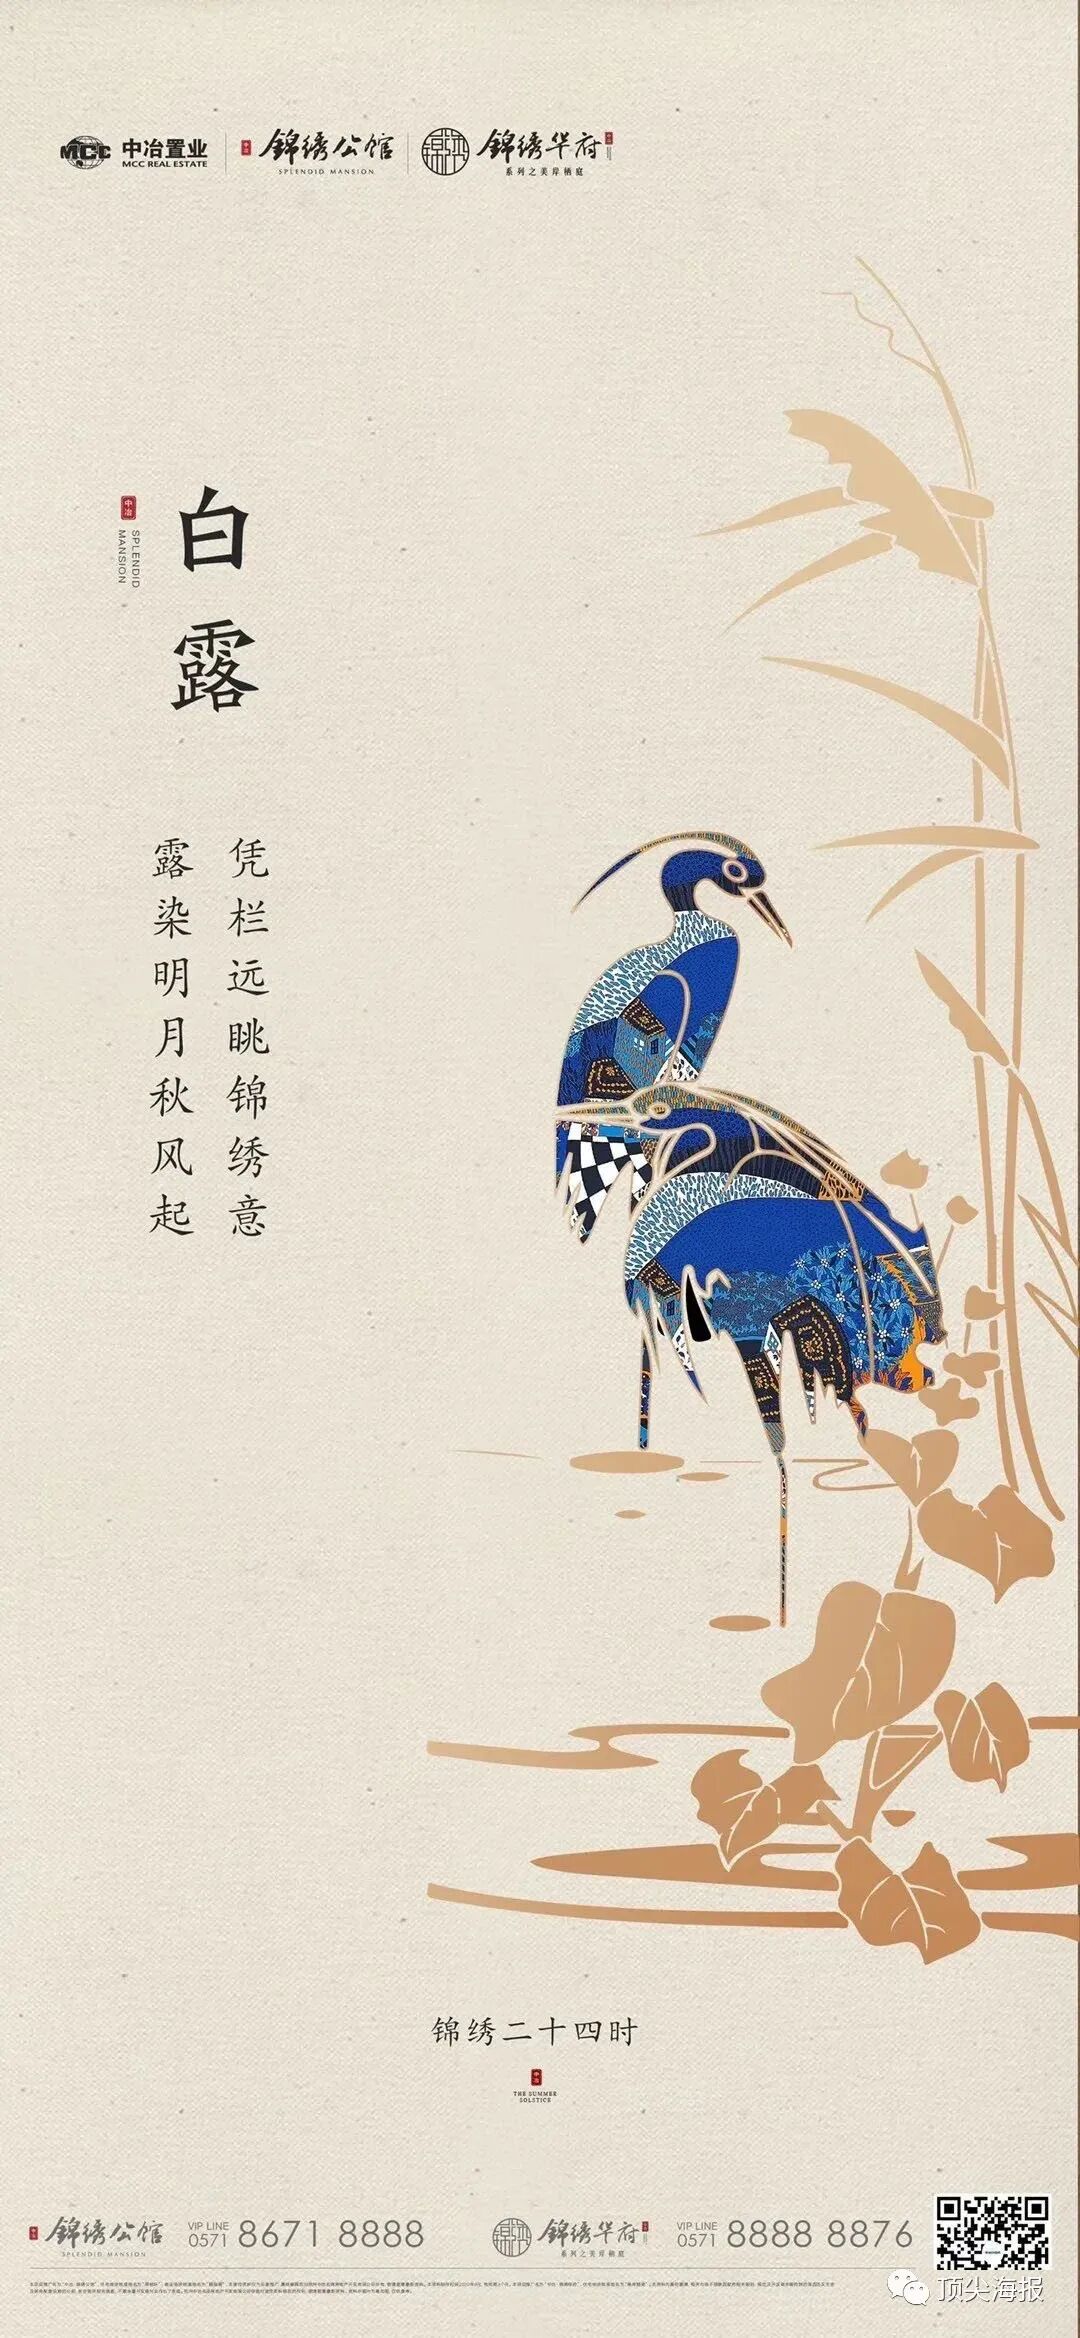 MCC
中冶置业
MCC REAL ESTATE
中冶
錦绣公馆
SPLENDID MANSION
錦绣华府
中冶
系列之美岸栖庭
中冶
SPLENDID
MANSION
白露
凭栏远眺锦绣意
露染明月秋风起
锦绣二十四时
中冶
THE SUMMER
SOLSTICE
錦绣公馆
SPLENDID MANSION
VIP LINE
0571
8671 8888
錦绣华府
系列之美岸栖庭
VIP LINE
0571
8888 8876
顶尖海报